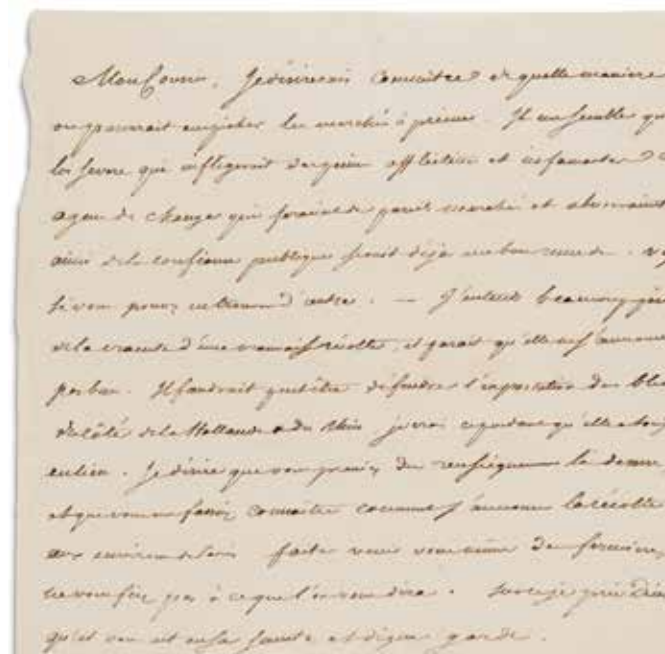 Mon Cousin, Je désirerais connaitre de quelle maniere
on pourrait empêcher les marchés à primes. Il me semble qu
loi severe qui infligerait des peines afflictives et infamantes
agens de change qui feraient de pareils marchés et abuseraient
ainsi de la confiance publique serait déjà un bon remede. 
si vous pouvez en trouver d'autre. — J'entends beaucoup
de la crainte d'une mauvaise récolte, il parait qu'elle ne s'annonce
pas bien. Il faudrait peut être défendre l'exportation des blés
du côté de la Hollande et du Rhin, je crois cependant qu'elle a
en lieu. Je désire que vous preniez des renseignemens la dessus
et que vous me fassiez connaitre comment s'annonce la récolte
aux environs de Paris faites venir vous même des fermiers,
ne vous fiez pas à ce que l'on vous dira. Sur ce je prie Dieu
qu'il vous ait en sa sainte et digne garde.